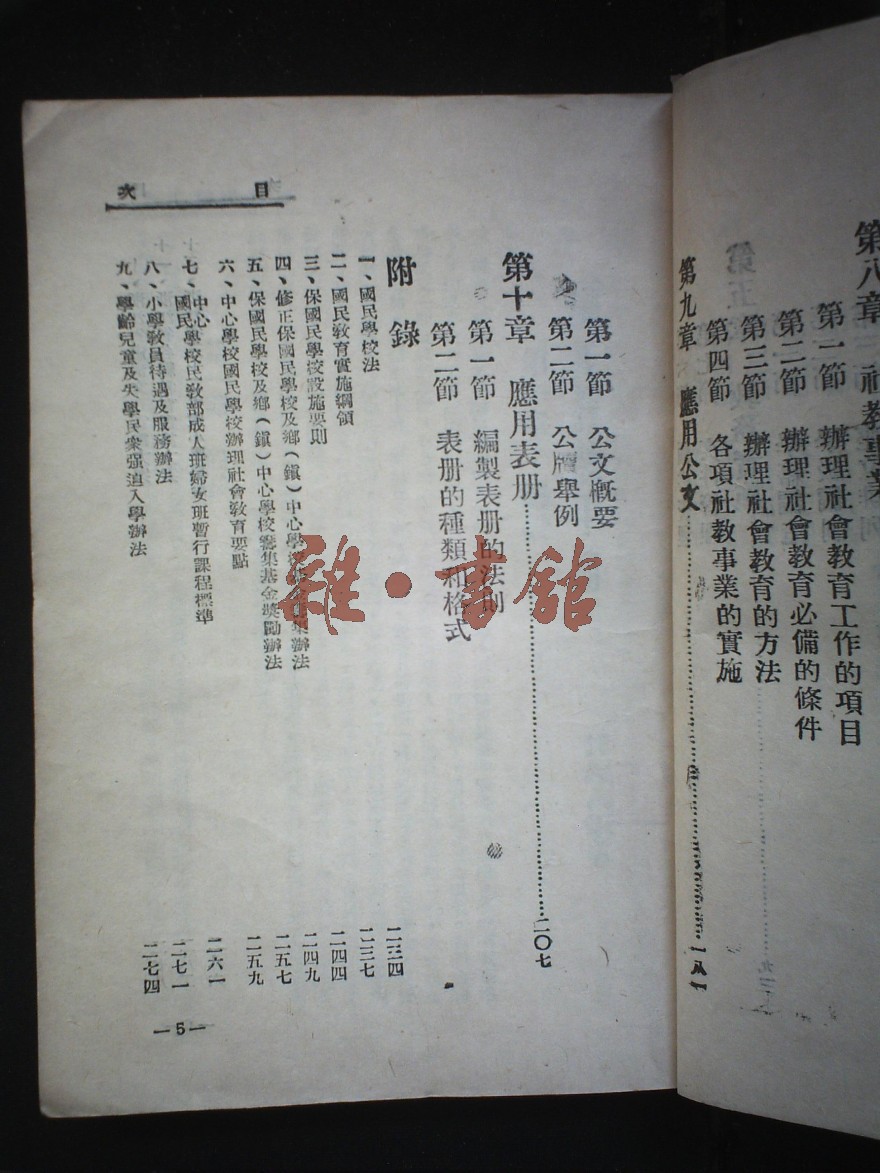 第八章 社教事業
第一節 辦理社會教育工作的項目
第二節 辦理社會教育必備的條件
第三節 辦理社會教育的方法
第四節 各項社教事業的實施
第九章 應用公文……一八一
目次
第一節 公文概要
第二節 公牘舉例
第十章 應用表册……二〇七
第一節 編製表册的法則
第二節 表册的種類和格式
附錄
一、國民學校法 二三四
二、國民教育實施綱領 二三七
三、保國民學校設施要則 二四四
四、修正保國民學校及鄉(鎮)中心學校基金籌集辦法 二四九
五、保國民學校及鄉(鎮)中心學校籌集基金獎勵辦法 二五七
六、中心學校國民學校辦理社會教育要點 二五九
七、中心國民學校民教部成人班婦女班暫行課程標準 二六一
八、小學教員待遇及服務辦法 二七一
九、學齡兒童及失學民衆强迫入學辦法 二七四
—5—
雜·書館